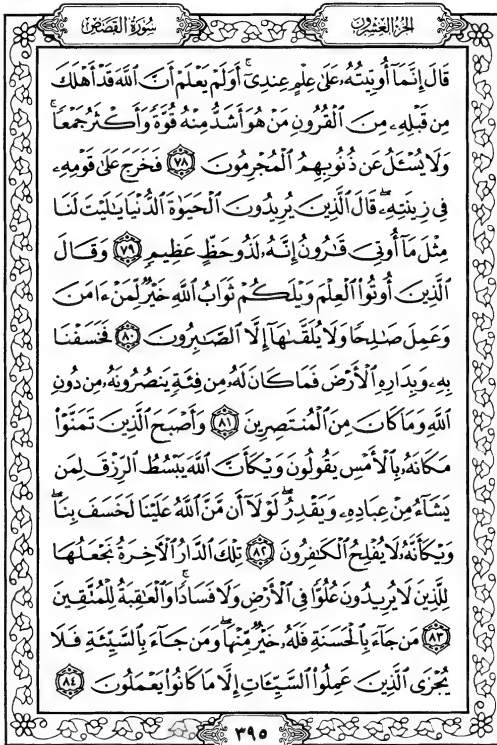 سُورَةُ القَصَصِ
الجُزْءُ العِشْرُونَ
قَالَ إِنَّمَآ أُوتِيتُهُۥ عَلَىٰ عِلْمٍ عِندِيٓ ۚ أَوَلَمْ يَعْلَمْ أَنَّ ٱللَّهَ قَدْ أَهْلَكَ
مِن قَبْلِهِۦ مِنَ ٱلْقُرُونِ مَنْ هُوَ أَشَدُّ مِنْهُ قُوَّةً وَأَكْثَرُ جَمْعًا ۚ
وَلَا يُسْـَٔلُ عَن ذُنُوبِهِمُ ٱلْمُجْرِمُونَ ٧٨ فَخَرَجَ عَلَىٰ قَوْمِهِۦ
فِي زِينَتِهِۦ ۖ قَالَ ٱلَّذِينَ يُرِيدُونَ ٱلْحَيَوٰةَ ٱلدُّنْيَا يَٰلَيْتَ لَنَا
مِثْلَ مَآ أُوتِيَ قَٰرُونُ إِنَّهُۥ لَذُو حَظٍّ عَظِيمٍ ٧٩ وَقَالَ
ٱلَّذِينَ أُوتُوا۟ ٱلْعِلْمَ وَيْلَكُمْ ثَوَابُ ٱللَّهِ خَيْرٌ لِّمَنْ ءَامَنَ
وَعَمِلَ صَٰلِحًا وَلَا يُلَقَّىٰهَآ إِلَّا ٱلصَّٰبِرُونَ ٨٠ فَخَسَفْنَا
بِهِۦ وَبِدَارِهِ ٱلْأَرْضَ فَمَا كَانَ لَهُۥ مِن فِئَةٍ يَنصُرُونَهُۥ مِن دُونِ
ٱللَّهِ وَمَا كَانَ مِنَ ٱلْمُنتَصِرِينَ ٨١ وَأَصْبَحَ ٱلَّذِينَ تَمَنَّوْا۟
مَكَانَهُۥ بِٱلْأَمْسِ يَقُولُونَ وَيْكَأَنَّ ٱللَّهَ يَبْسُطُ ٱلرِّزْقَ لِمَن
يَشَآءُ مِنْ عِبَادِهِۦ وَيَقْدِرُ ۖ لَوْلَآ أَن مَّنَّ ٱللَّهُ عَلَيْنَا لَخَسَفَ بِنَا ۖ
وَيْكَأَنَّهُۥ لَا يُفْلِحُ ٱلْكَٰفِرُونَ ٨٢ تِلْكَ ٱلدَّارُ ٱلْأَخِرَةُ نَجْعَلُهَا
لِلَّذِينَ لَا يُرِيدُونَ عُلُوًّا فِي ٱلْأَرْضِ وَلَا فَسَادًا ۚ وَٱلْعَٰقِبَةُ لِلْمُتَّقِينَ
٨٣ مَن جَآءَ بِٱلْحَسَنَةِ فَلَهُۥ خَيْرٌ مِّنْهَا ۖ وَمَن جَآءَ بِٱلسَّيِّئَةِ فَلَا
يُجْزَى ٱلَّذِينَ عَمِلُوا۟ ٱلسَّيِّـَٔاتِ إِلَّا مَا كَانُوا۟ يَعْمَلُونَ ٨٤
٣٩٥